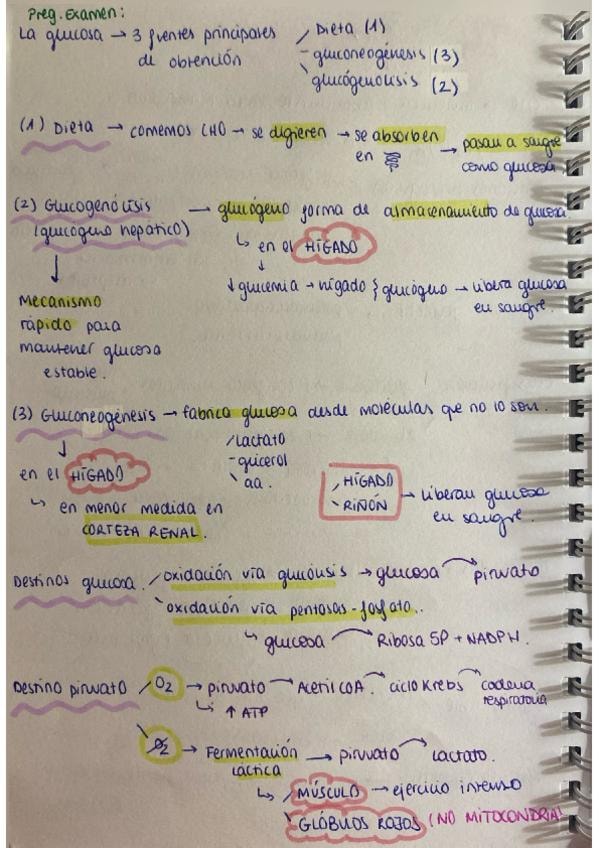 Preg. Examen:
La glucosa → 3 fuentes principales Dieta (1)
de obtención - gluconeogénesis (3)
glucógenolisis (2)
(1) Dieta → comemos CHO → se digieren → se absorben → pasan a sangre
en como glucosa
(2) Glucogenólisis → glucógeno forma de almacenamiento de glucosa
(glucógeno hepático) ↳ en el HÍGADO
↓ glucemia → hígado } glucógeno → libera glucosa
en sangre.
Mecanismo
rápido para
mantener glucosa
estable.
(3) Gluconeogénesis → fabrica glucosa desde moléculas que no lo son.
lactato
- glicerol
aa.
en el HÍGADO
↳ en menor medida en
CORTEZA RENAL.
HÍGADO
RIÑÓN → Liberan glucosa
en sangre.
Destinos glucosa oxidación vía glucólisis → glucosa → piruvato
oxidación vía pentosas-fosfato..
↳ glucosa → Ribosa 5P + NADPH.
Destino piruvato O2 → piruvato → Acetil CoA. → ciclo Krebs → cadena
respiratoria
↳ ↑ ATP
O2 → Fermentación → piruvato → lactato.
láctica
↳ MÚSCULO → ejercicio intenso
GLÓBULOS ROJOS (NO MITOCONDRIA)